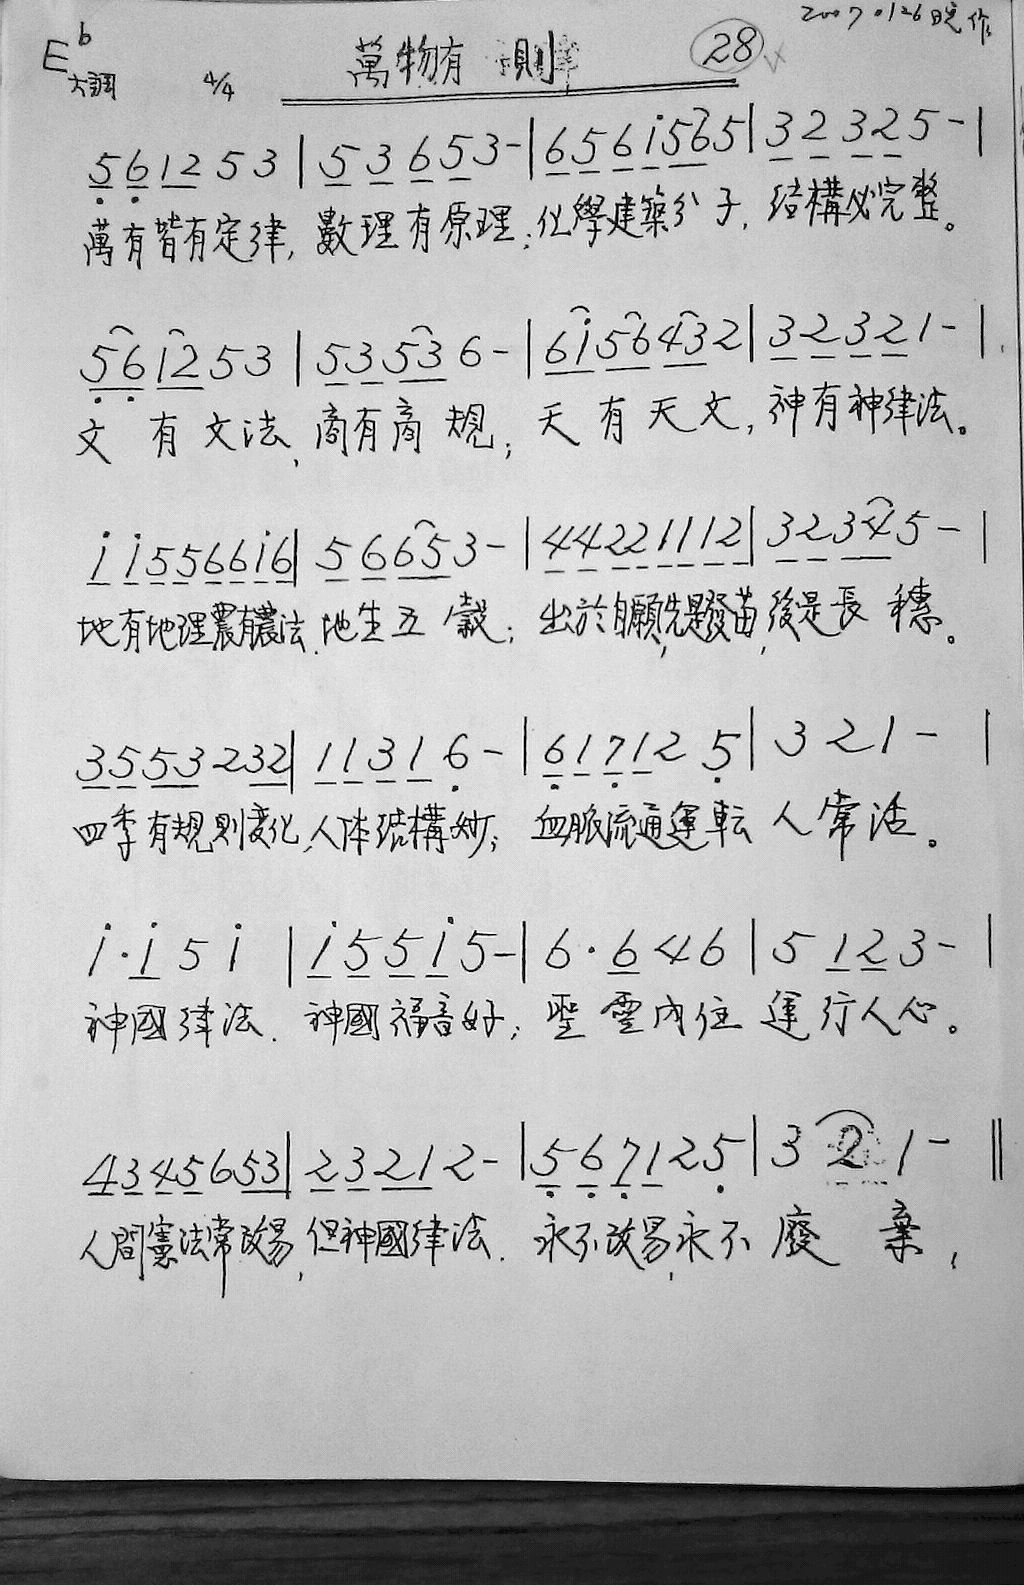 2007.1.26日晚作
E♭大調 4/4 萬物有 則 28
5 6 1 2 5 3 | 5 3 6 5 3 - | 6 5 6 i 5 6 5 | 3 2 3 2 5 - |
萬有皆有定律, 數理有原理;化學建築分子,結構必完整。
5 6 1 2 5 3 | 5 3 5 3 6 - | 6 i 5 6 4 3 2 | 3 2 3 2 1 - |
文有文法、商有商規;天有天文,神有神律法。
i i 5 5 6 6 i 6 | 5 6 6 5 3 - | 4 4 2 2 1 1 1 2 | 3 2 3 4 5 - |
地有地理農有農法、地生五穀;出於自願,先是發苗,後是長穗。
3 5 5 3 2 3 2 | 1 1 3 1 6 - | 6 1 7 1 2 5 | 3 2 1 - |
四季有規則變化,人体結構妙;血脈流通運転人常活。
i · i 5 i | i 5 5 i 5 - | 6 · 6 4 6 | 5 1 2 3 - |
神國律法、神國福音好;聖靈內住運行人心。
4 3 4 5 6 5 3 | 2 3 2 1 2 - | 5 6 7 1 2 5 | 3 2 1 - ‖
人間憲法常改易,但神國律法、永不改易,永不廢棄,